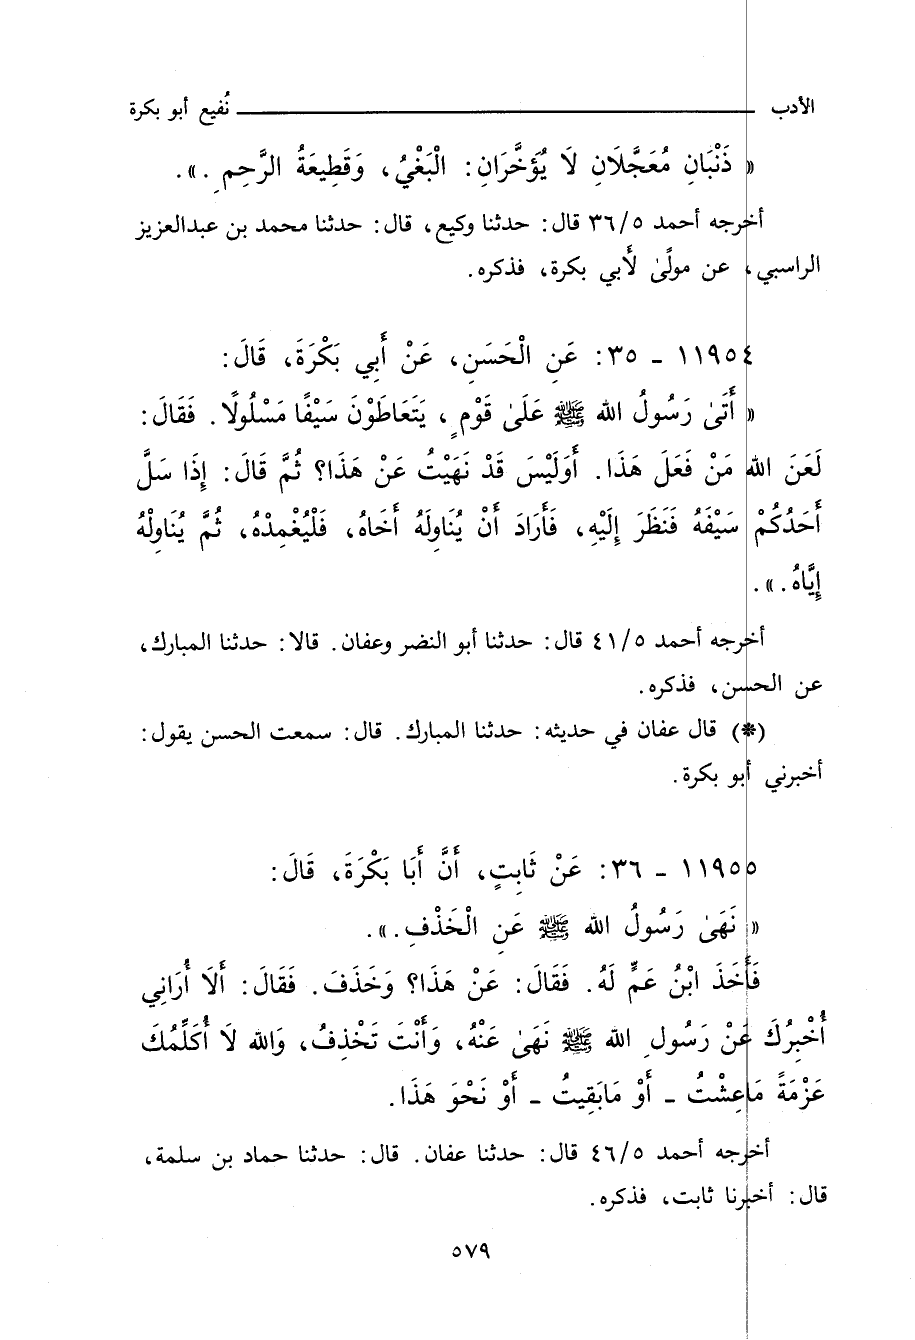 الأدب ــــــــــ نُفيع أبو بكرة
« ذَنْبَانِ مُعَجَّلَانِ لَا يُؤَخَّرَانِ: الْبَغْيُ، وَقَطِيعَةُ الرَّحِمِ.».
أخرجه أحمد ٣٦/٥ قال: حدثنا وكيع، قال: حدثنا محمد بن عبدالعزيز
الراسبي، عن مولًى لأَبي بكرة، فذكره.
١١٩٥٤ - ٣٥: عَنِ الْحَسَنِ، عَنْ أَبِي بَكْرَةَ، قَالَ:
« أَتَىٰ رَسُولُ الله ﷺ عَلَىٰ قَوْمٍ، يَتَعَاطَوْنَ سَيْفًا مَسْلُولًا. فَقَالَ:
لَعَنَ الله مَنْ فَعَلَ هَذَا. أَوَلَيْسَ قَدْ نَهَيْتُ عَنْ هَذَا؟ ثُمَّ قَالَ: إِذَا سَلَّ
أَحَدُكُمْ سَيْفَهُ فَنَظَرَ إِلَيْهِ، فَأَرَادَ أَنْ يُنَاوِلَهُ أَخَاهُ، فَلْيُغْمِدْهُ، ثُمَّ يُنَاوِلْهُ
إِيَّاهُ.».
أخرجه أحمد ٤١/٥ قال: حدثنا أبو النضر وعفان. قالا: حدثنا المبارك،
عن الحسن، فذكره.
(*) قال عفان في حديثه: حدثنا المبارك. قال: سمعت الحسن يقول:
أخبرني أبو بكرة.
١١٩٥٥ - ٣٦: عَنْ ثَابِتٍ، أَنَّ أَبَا بَكْرَةَ، قَالَ:
« نَهَىٰ رَسُولُ الله ﷺ عَنِ الْخَذْفِ.».
فَأَخَذَ ابْنُ عَمٍّ لَهُ. فَقَالَ: عَنْ هَذَا؟ وَخَذَفَ. فَقَالَ: أَلَا أُرَانِي
أُخْبِرُكَ عَنْ رَسُولِ الله ﷺ نَهَىٰ عَنْهُ، وَأَنْتَ تَخْذِفُ، وَالله لَا أُكَلِّمُكَ
عَزْمَةً مَاعِشْتُ - أَوْ مَابَقِيتُ - أَوْ نَحْوَ هَذَا.
أخرجه أحمد ٤٦/٥ قال: حدثنا عفان. قال: حدثنا حماد بن سلمة،
قال: أخبرنا ثابت، فذكره.
٥٧٩